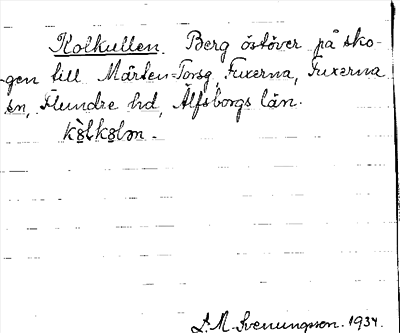 Kolkullen. Berg östöver på sko-
gen till Mårten-Torsg, Fuxerna, Fuxerna
sn, Flundre hd, Älfsborgs län.
kòlkolən -
L. M. Svenungsson. 1934.